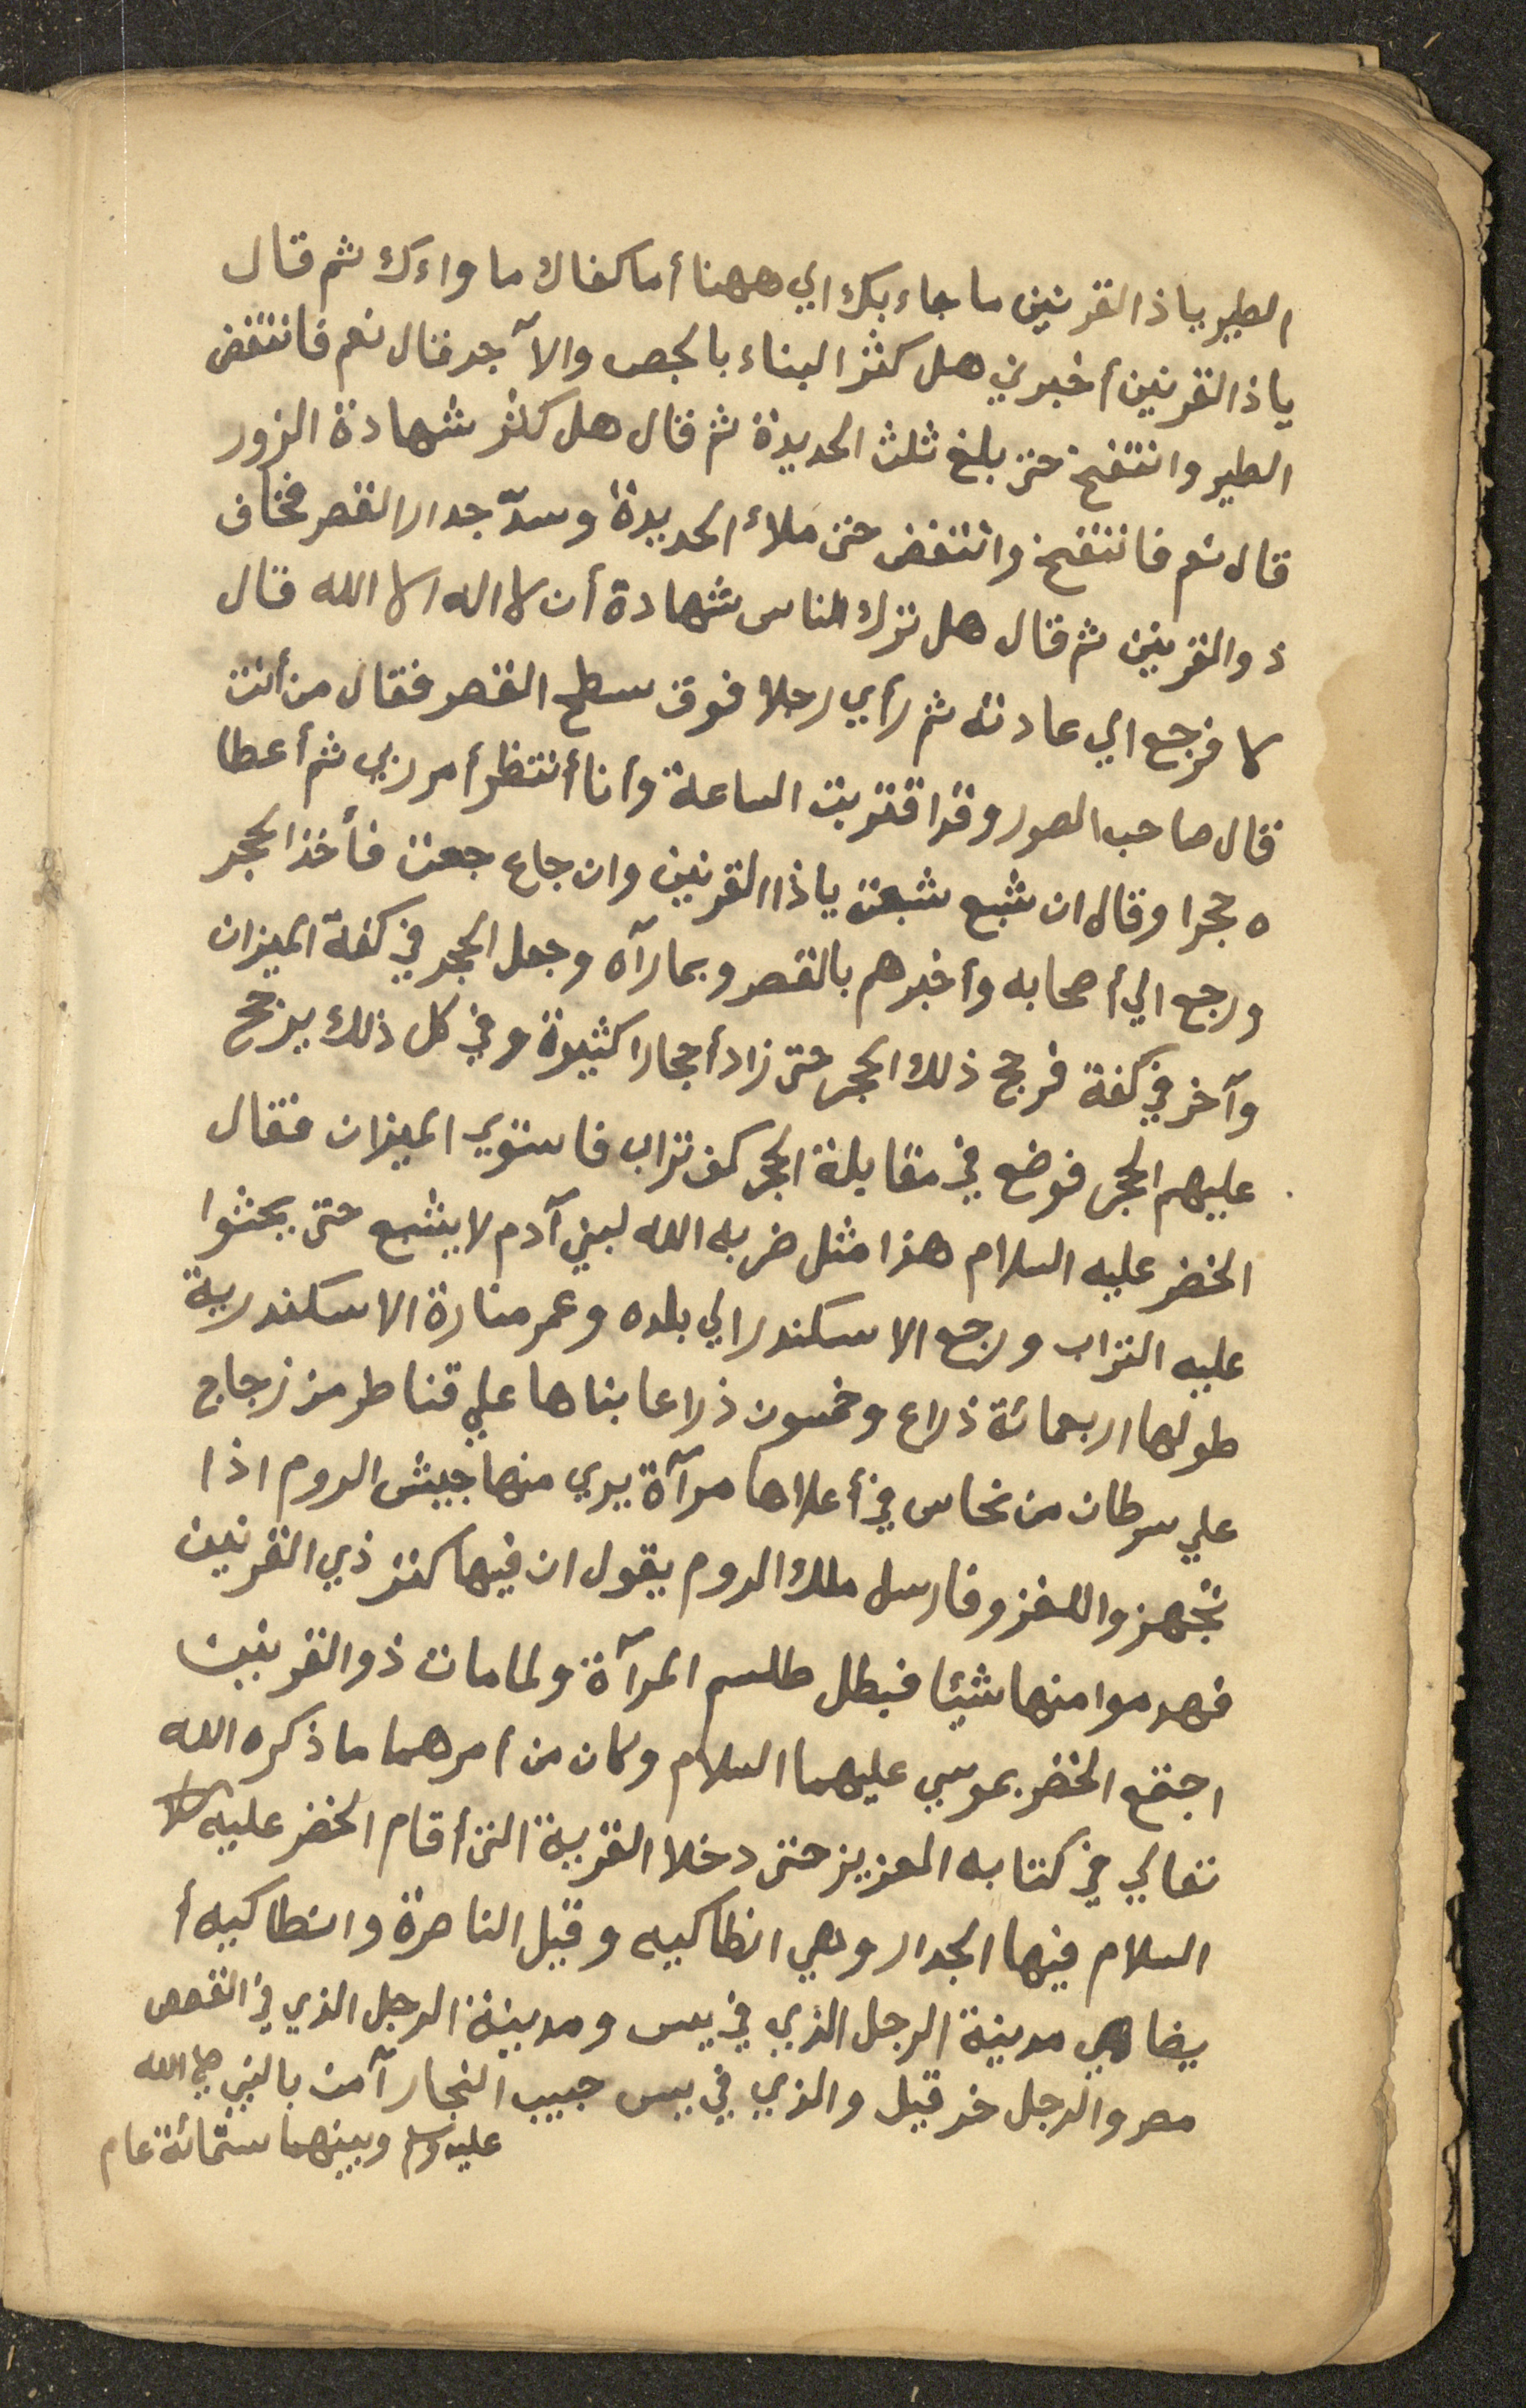 الطير ياذ القرنين ما جاء بك الي ههنا أما كفاك ما واءك ثم قال
ياذ القرنين أخبرني هل كثر البناء بالجص والآجر فقال نعم فانتفض
الطير وانتفخ حتى بلغ ثلث الحديدة ثم قال هل كثر شهادة الزور
قال نعم فانتفخ وانتفض حتى ملاء الحديدة وسدّ جدار القصر فخاف
ذو القرنين ثم قال هل ترك الناس شهادة أن لا اله الا الله قال
لا فرجع الي عادته ثم رأي رجلا فوق سطح القصر فقال من أنت
قال صاحب الصور وقد اقتربت الساعة وأنا أنتظر أمر ربي ثم أعطا
ه حجرا وقال ان شبع شبعت ياذا القرنين وان جاع جعت فأخذ الحجر
ورجع الي أصحابه وأخبرهم بالقصر وبما رآه وجعل الحجر في كفة الميزان
وآخر في كفة فرجح ذلك الحجر حتى زاد أحجارا كثيرة وفي كل ذلك يرجح
عليهم الحجر فوضع في مقابلة الحجر كف تراب فاستوي الميزان فقال
الخضر عليه السلام هذا مثل ضربه الله لبني آدم لا يشبع حتى يحثوا
عليه التراب ورجع الاسكندر الي بلده وعمر منارة الاسكندرية
طولها اربعمائة ذراع وخمسون ذراعا بناها علي قناطر من زجاج
علي سرطان من نحاس في أعلاها مرآة يري منها جيش الروم اذا
تجهزوا للغزو فارسل ملك الروم يقول ان فيها كنز ذي القرنين
فهدموا منها شيئا فبطل طلسم المرآة ولما مات ذو القرنين
اجتمع الخضر بموسي عليهما السلام وكان من أمرهما ما ذكره الله
تعالي في كتابه العزيز حتى دخلا القرية التى أقام الخضر عليه
السلام فيها الجدار وهي انطاكيه وقيل الناصرة وانطاكيه أ
يضا هي مدينة الرجل الذي في يس ومدينة الرجل الذي في القصص
مصر والرجل خرقيل والذي في يس حبيب النجار آمن بالنبي صلي الله
عليه وسلم وبينهما ستمائة عام